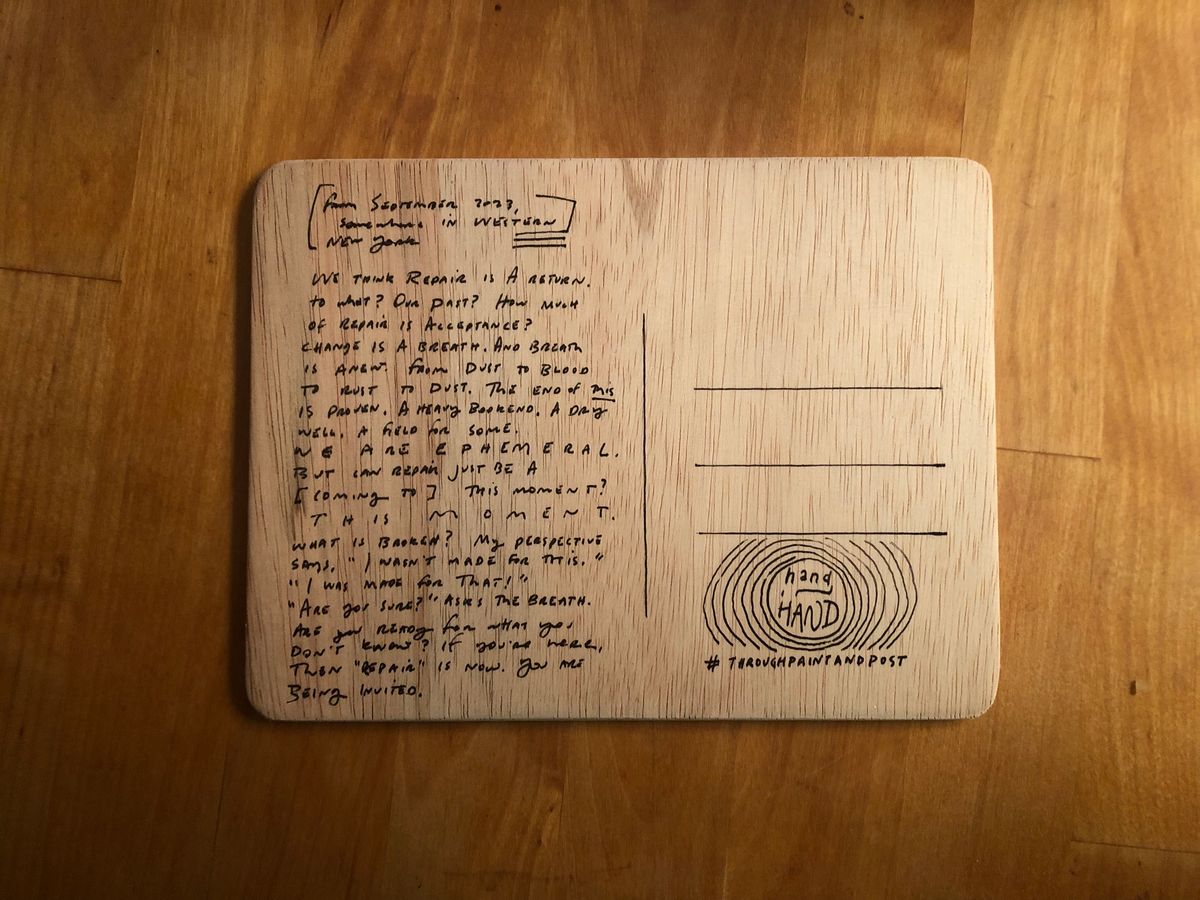 [From September 2023,
Somewhere in WESTERN
NEW York]
WE THINK REPAIR IS A RETURN.
TO WHAT? OUR PAST? HOW MUCH
OF REPAIR IS ACCEPTANCE?
CHANGE IS A BREATH. AND BREATH
IS ANEW. FROM DUST TO BLOOD
TO RUST TO DUST. THE END OF THIS
IS PROVEN. A HEAVY BOOKEND. A DRY
WELL. A FIELD FOR SOME.
WE ARE EPHEMERAL.
BUT CAN REPAIR JUST BE A
[COMING TO] THIS MOMENT?
THIS MOMENT.
WHAT IS BROKEN? MY PERSPECTIVE
SAYS, "I WASN'T MADE FOR THIS."
"I WAS MADE FOR THAT!"
"ARE YOU SURE?" ASKS THE BREATH.
ARE YOU READY FOR WHAT YOU
DON'T KNOW? IF YOU'RE HERE,
THEN "REPAIR" IS NOW. YOU ARE
BEING INVITED.
hand
HAND
# THROUGHPAINTANDPOST